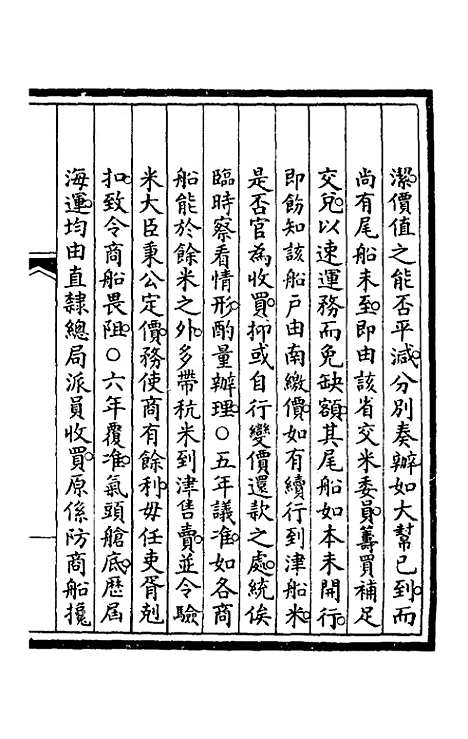 潔。價值之能否平減。分別奏辦如大幫已到。而
尚有尾船未至。即由該省交米委員籌買補足
交兌。以速運務而免缺額。其尾船如本未開行。
即飭知該船戶由南繳價。如有續行到津船米。
是否官為收買。抑或自行變價還款之處。統俟
臨時察看情形。酌量辦理。○五年議准。如各商
船能於餘米之外。多帶秔米到津售賣。並令驗
米大臣秉公定價。務使商有餘利。毋任吏胥剋
扣。致令商船畏阻。○六年覆准。氣頭艙底。歷屆
海運。均由直隸總局派員收買。原係防商船攙